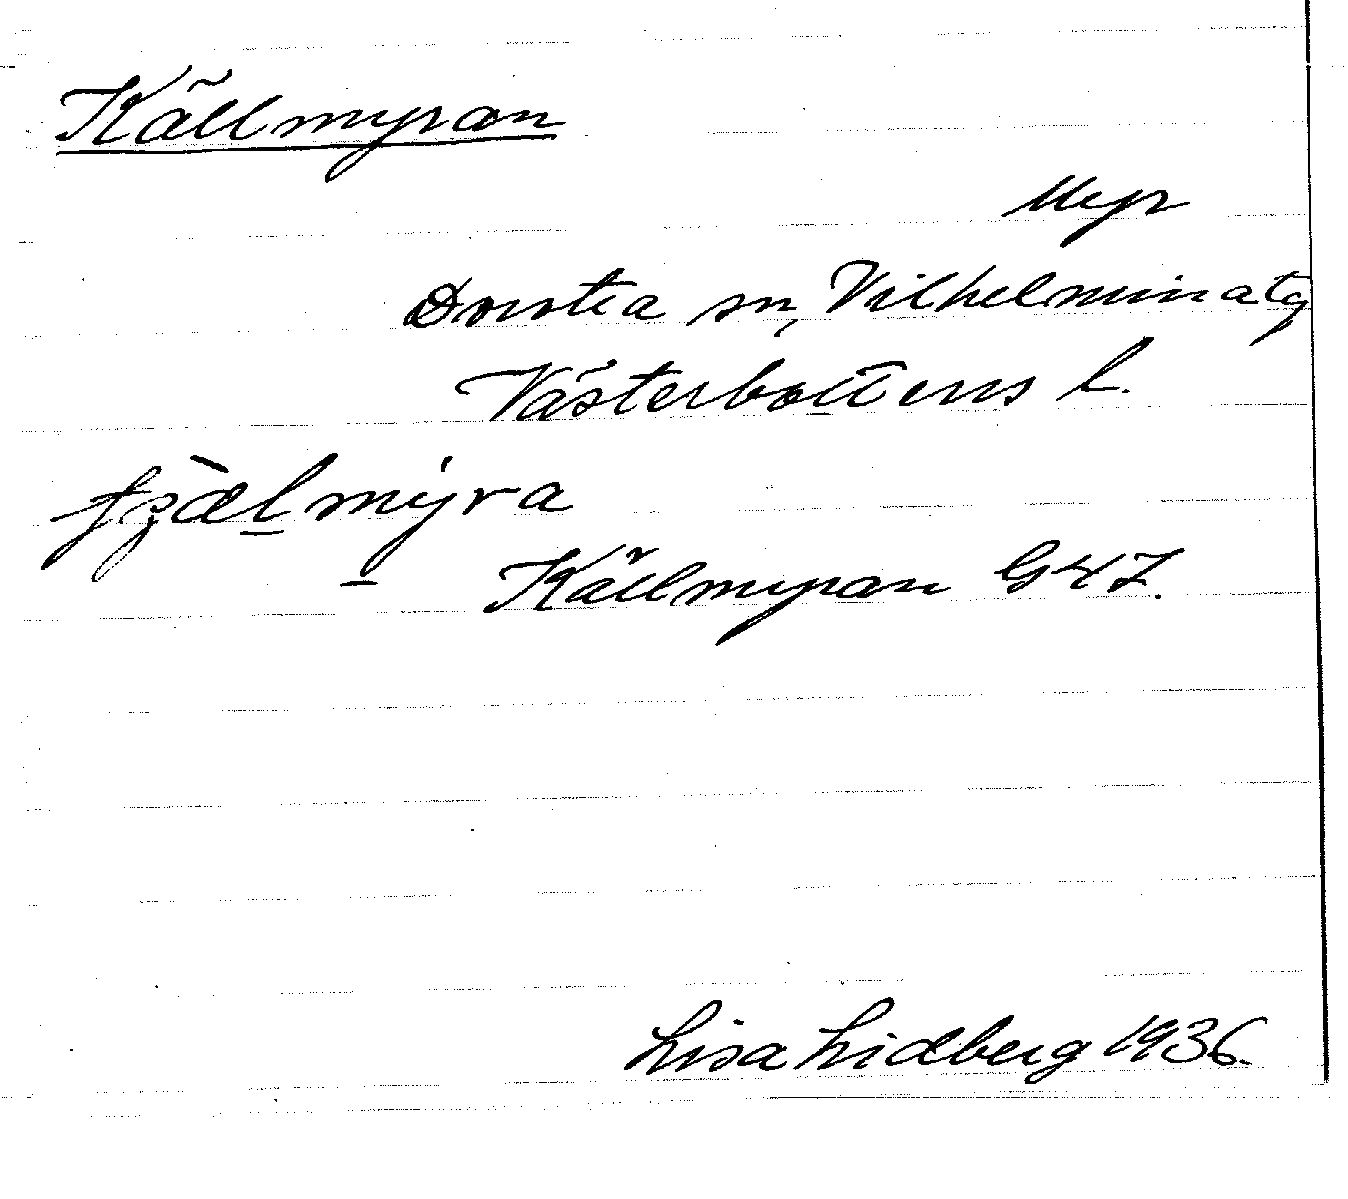 Källmyran
Myr
Dorotea sn, Vilhelmina tg
Västerbottens l.
Källmyran G47.
Lisa Lidberg 1936.